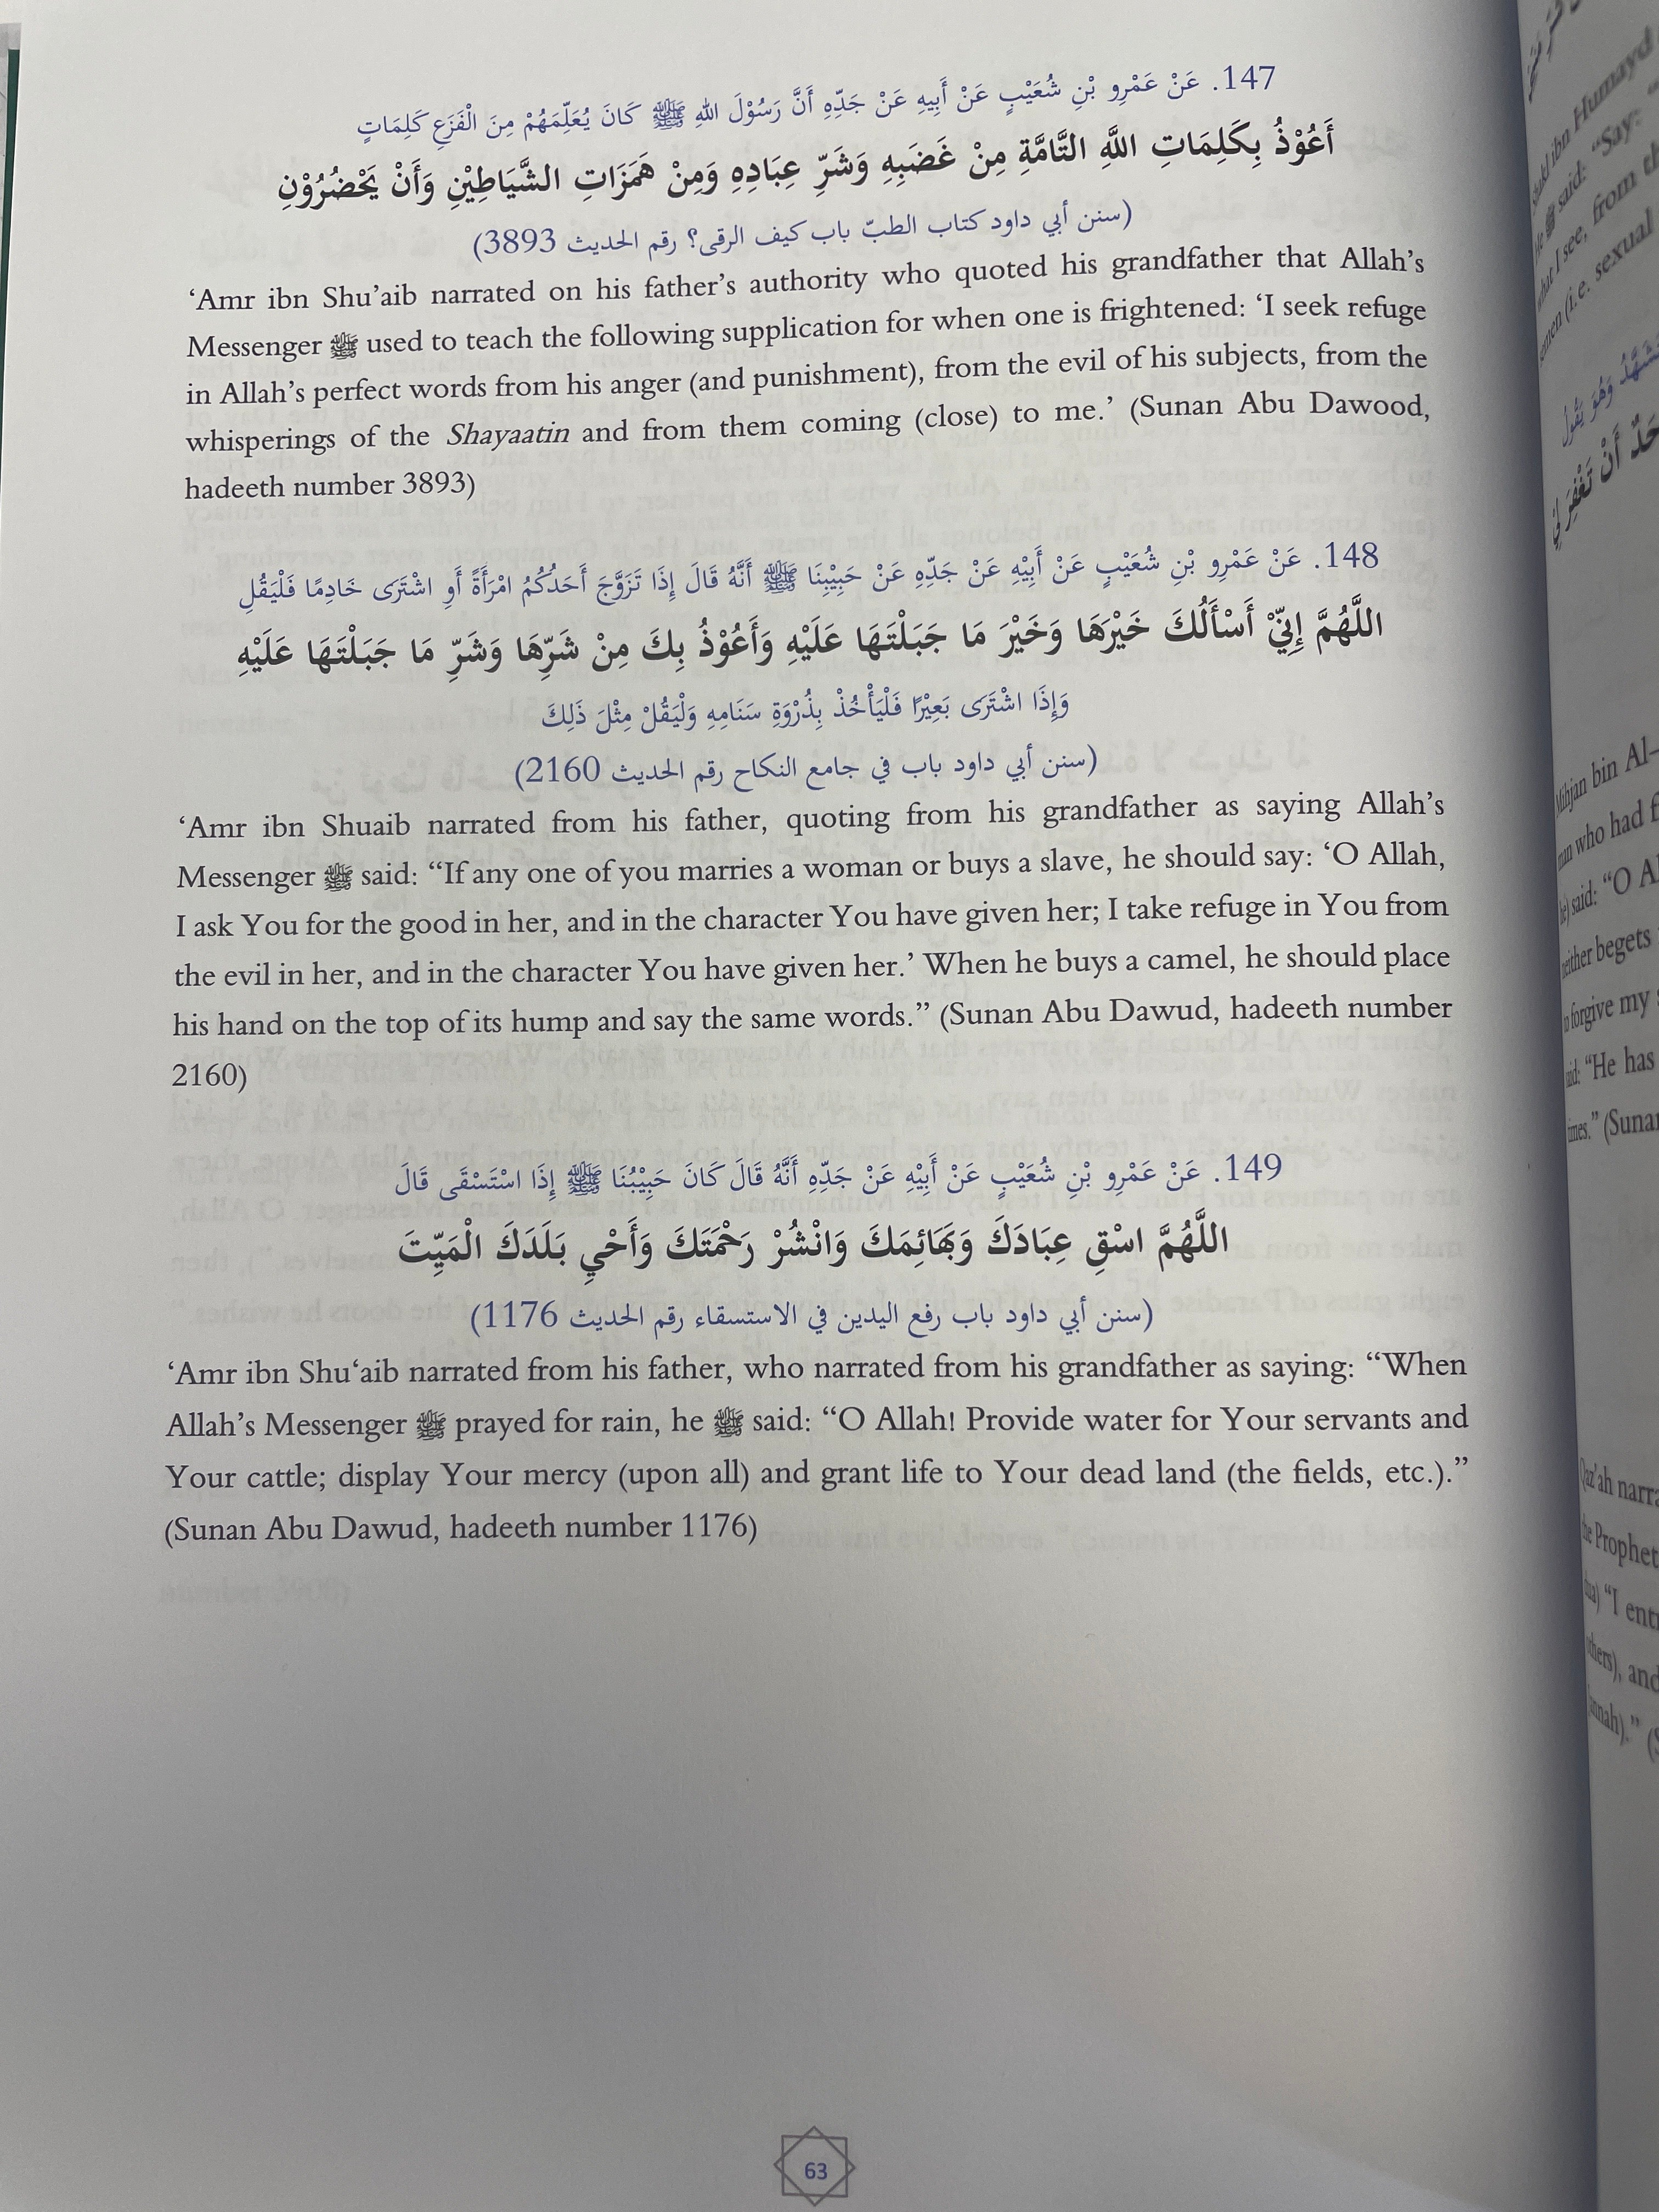 147. عَنْ عَمْرِو بْنِ شُعَيْبٍ عَنْ أَبِيهِ عَنْ جَدِّهِ أَنَّ رَسُوْلَ اللهِ ﷺ كَانَ يُعَلِّمَهُمْ مِنَ الْفَزَعِ كَلِمَاتٍ
أَعُوْذُ بِكَلِمَاتِ اللَّهِ التَّامَّةِ مِنْ غَضَبِهِ وَشَرِّ عِبَادِهِ وَمِنْ هَمَزَاتِ الشَّيَاطِيْنِ وَأَنْ يَحْضُرُوْنِ
(سنن أبي داود كتاب الطبّ باب كيف الرقى؟ رقم الحديث 3893)
‘Amr ibn Shu’aib narrated on his father’s authority who quoted his grandfather that Allah’s
Messenger ﷺ used to teach the following supplication for when one is frightened: ‘I seek refuge
in Allah’s perfect words from his anger (and punishment), from the evil of his subjects, from the
whisperings of the Shayaatin and from them coming (close) to me.’ (Sunan Abu Dawood,
hadeeth number 3893)
148. عَنْ عَمْرِو بْنِ شُعَيْبٍ عَنْ أَبِيْهِ عَنْ جَدِّهِ عَنْ حَبِيْبِنَا ﷺ أَنَّهُ قَالَ إِذَا تَزَوَّجَ أَحَدُكُمُ امْرَأَةً أَوِ اشْتَرَى خَادِمًا فَلْيَقُلِ
اللَّهُمَّ إِنِّيْ أَسْأَلُكَ خَيْرَهَا وَخَيْرَ مَا جَبَلْتَهَا عَلَيْهِ وَأَعُوْذُ بِكَ مِنْ شَرِّهَا وَشَرِّ مَا جَبَلْتَهَا عَلَيْهِ
وَإِذَا اشْتَرَى بَعِيْرًا فَلْيَأْخُذْ بِذُرْوَةِ سَنَامِهِ وَلْيَقُلْ مِثْلَ ذَلِكَ
(سنن أبي داود باب في جامع النكاح رقم الحديث 2160)
‘Amr ibn Shuaib narrated from his father, quoting from his grandfather as saying Allah’s
Messenger ﷺ said: “If any one of you marries a woman or buys a slave, he should say: ‘O Allah,
I ask You for the good in her, and in the character You have given her; I take refuge in You from
the evil in her, and in the character You have given her.’ When he buys a camel, he should place
his hand on the top of its hump and say the same words.” (Sunan Abu Dawud, hadeeth number
2160)
149. عَنْ عَمْرِو بْنِ شُعَيْبٍ عَنْ أَبِيْهِ عَنْ جَدِّهِ أَنَّهُ قَالَ كَانَ حَبِيْبُنَا ﷺ إِذَا اسْتَسْقَى قَالَ
اللَّهُمَّ اسْقِ عِبَادَكَ وَبَهَائِمَكَ وَانْشُرْ رَحْمَتَكَ وَأَحْيِ بَلَدَكَ الْمَيِّتَ
(سنن أبي داود باب رفع اليدين في الاستسقاء رقم الحديث 1176)
‘Amr ibn Shu‘aib narrated from his father, who narrated from his grandfather as saying: “When
Allah’s Messenger ﷺ prayed for rain, he ﷺ said: “O Allah! Provide water for Your servants and
Your cattle; display Your mercy (upon all) and grant life to Your dead land (the fields, etc.).”
(Sunan Abu Dawud, hadeeth number 1176)
63
ibn Humayd
said: “Say:
what I see, from
(i.e. sexual
وَهُوَ يَقُولُ
أَنْ تَغْفِرَ لِيْ
Mihjan bin Al-
man who had
said: “O
neither begets
forgive my
“He has
(Sunan
Qaz’ah
the Prophet
“I
and